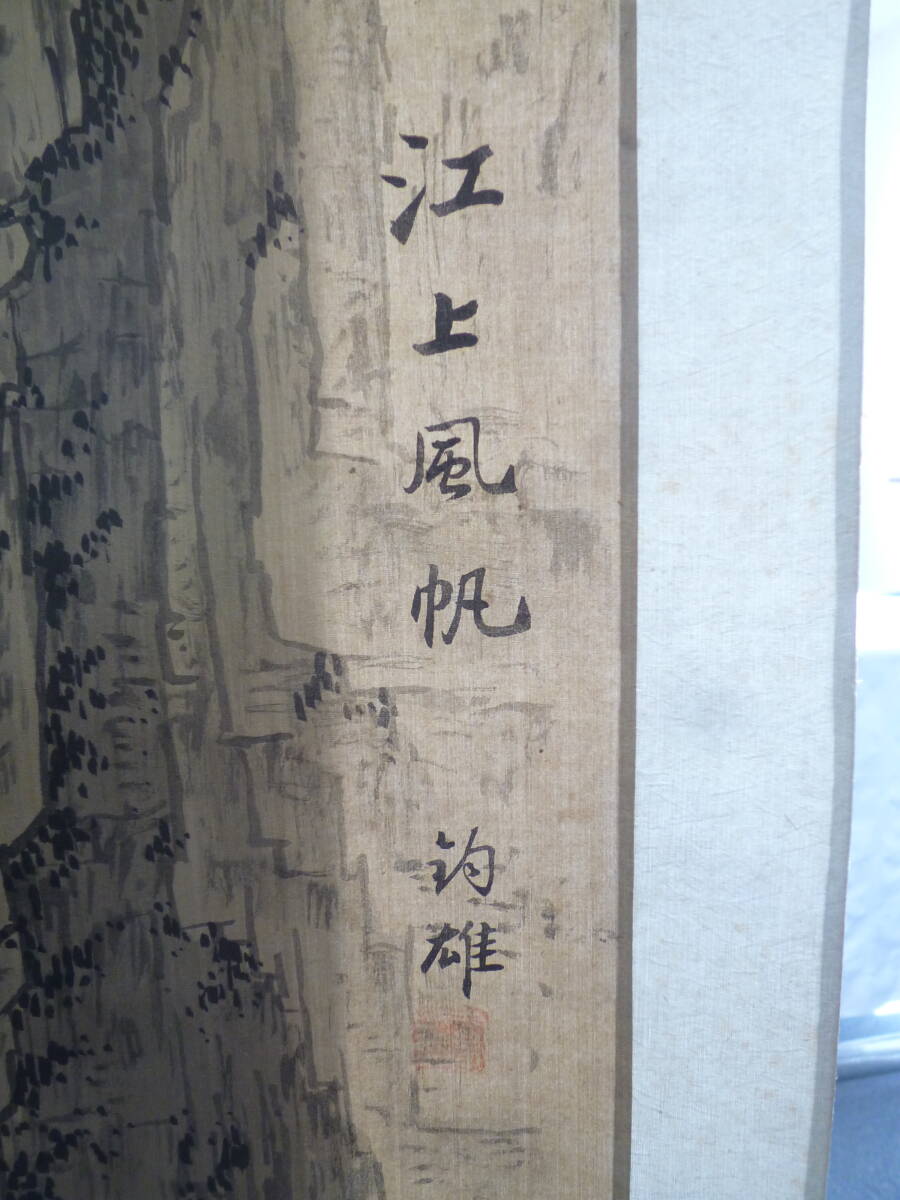 江上風帆
鈞雄